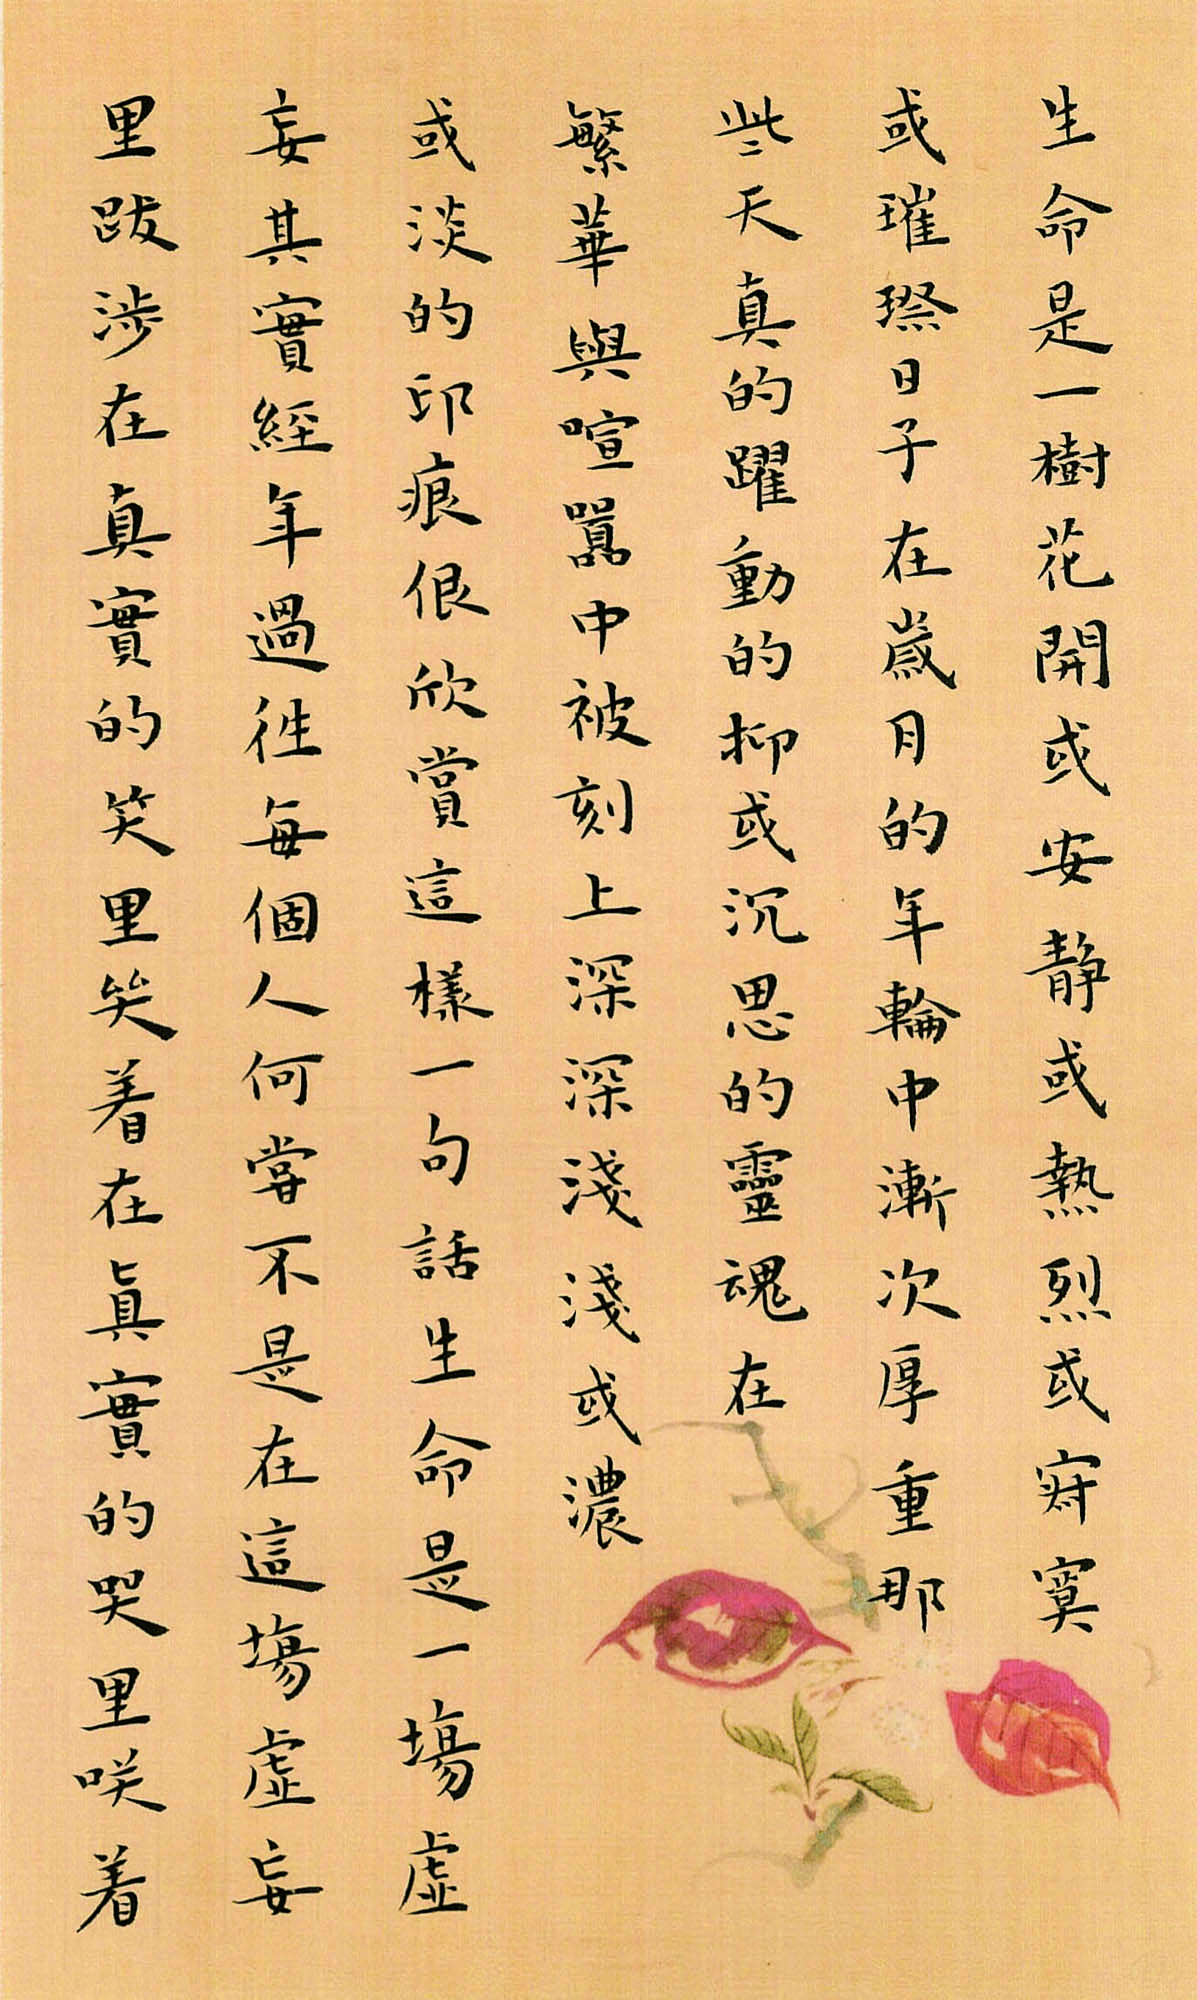 生命是一樹花開或安靜或熱烈或寂寞
或璀璨日子在歲月的年輪中漸次厚重那
些天真的躍動的抑或沉思的靈魂在
繁華與喧囂中被刻上深深淺淺或濃
或淡的印痕很欣賞這樣一句話生命是一場虛
妄其實經年過往每個人何嘗不是在這場虛妄
里跋涉在真實的笑里笑着在真實的哭里咲着